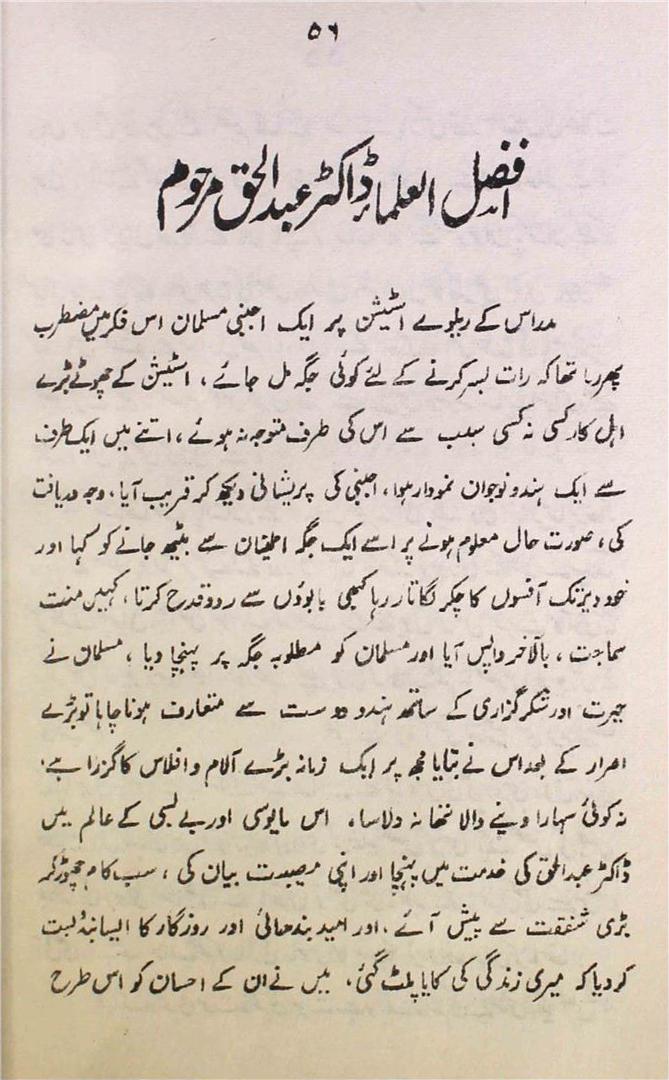 ۵۶
افضل العلماء ڈاکٹر عبد الحق مرحوم
مدراس کے ریلوے اسٹیشن پر ایک اجنبی مسلمان اس فکر میں مضطرب
پھر رہا تھا کہ رات بسر کرنے کے لئے کوئی جگہ مل جائے، اسٹیشن کے چھوٹے بڑے
اہل کار کسی نہ کسی سبب سے اس کی طرف متوجہ نہ ہوئے، اتنے میں ایک طرف
سے ایک ہندو نوجوان نمودار ہوا، اجنبی کی پریشانی دیکھ کر قریب آیا، وجہ دریافت
کی، صورت حال معلوم ہونے پر اسے ایک جگہ اطمینان سے بیٹھ جانے کو کہا اور
خود دیر تک آفسوں کا چکر لگاتا رہا کبھی بابوؤں سے ردو قدح کرتا، کہیں منت
سماجت، بالآخر واپس آیا اور مسلمان کو مطلوبہ جگہ پر پہنچا دیا، مسلمان نے
حیرت اور شکر گزاری کے ساتھ ہندو دوست سے متعارف ہونا چاہا تو بڑے
اصرار کے بعد اس نے بتایا مجھ پر ایک زمانہ بڑے آلام و افلاس کا گزرا ہے،
نہ کوئی سہارا دینے والا تھا نہ دلاسا، اس مایوسی اور بے بسی کے عالم میں
ڈاکٹر عبد الحق کی خدمت میں پہنچا اور اپنی مصیبت بیان کی، سب کام چھوڑ کر
بڑی شفقت سے پیش آئے، اور امید بندھائی اور روزگار کا ایسا بندوبست
کر دیا کہ میری زندگی کی کایا پلٹ گئی، میں نے ان کے احسان کو اس طرح